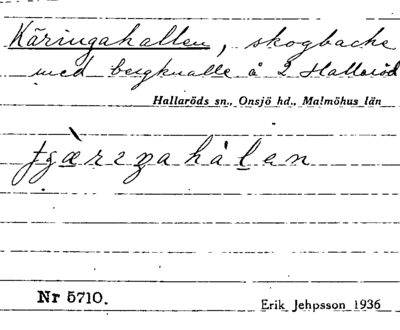 Käringahallen, skogbacke
med bergknalle å 2 Hallaröd
Hallaröds sn., Onsjö hd., Malmöhus län
Nr 5710.
Erik Jehpsson 1936